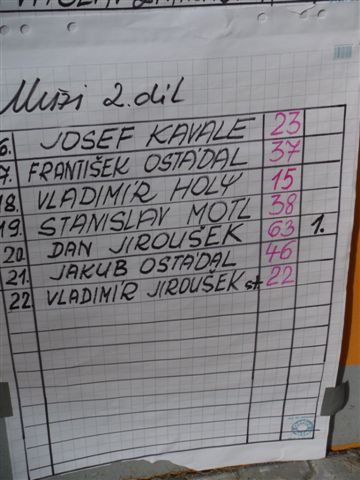 Muži 2. díl
6. JOSEF KAVALE 23
7. FRANTIŠEK OSTÁDAL 37
18. VLADIMÍR HOLÝ 15
19. STANISLAV MOTL 38
20. DAN JIROUŠEK 63 1.
21. JAKUB OSTÁDAL 46
22 VLADIMÍR JIROUŠEK st 22